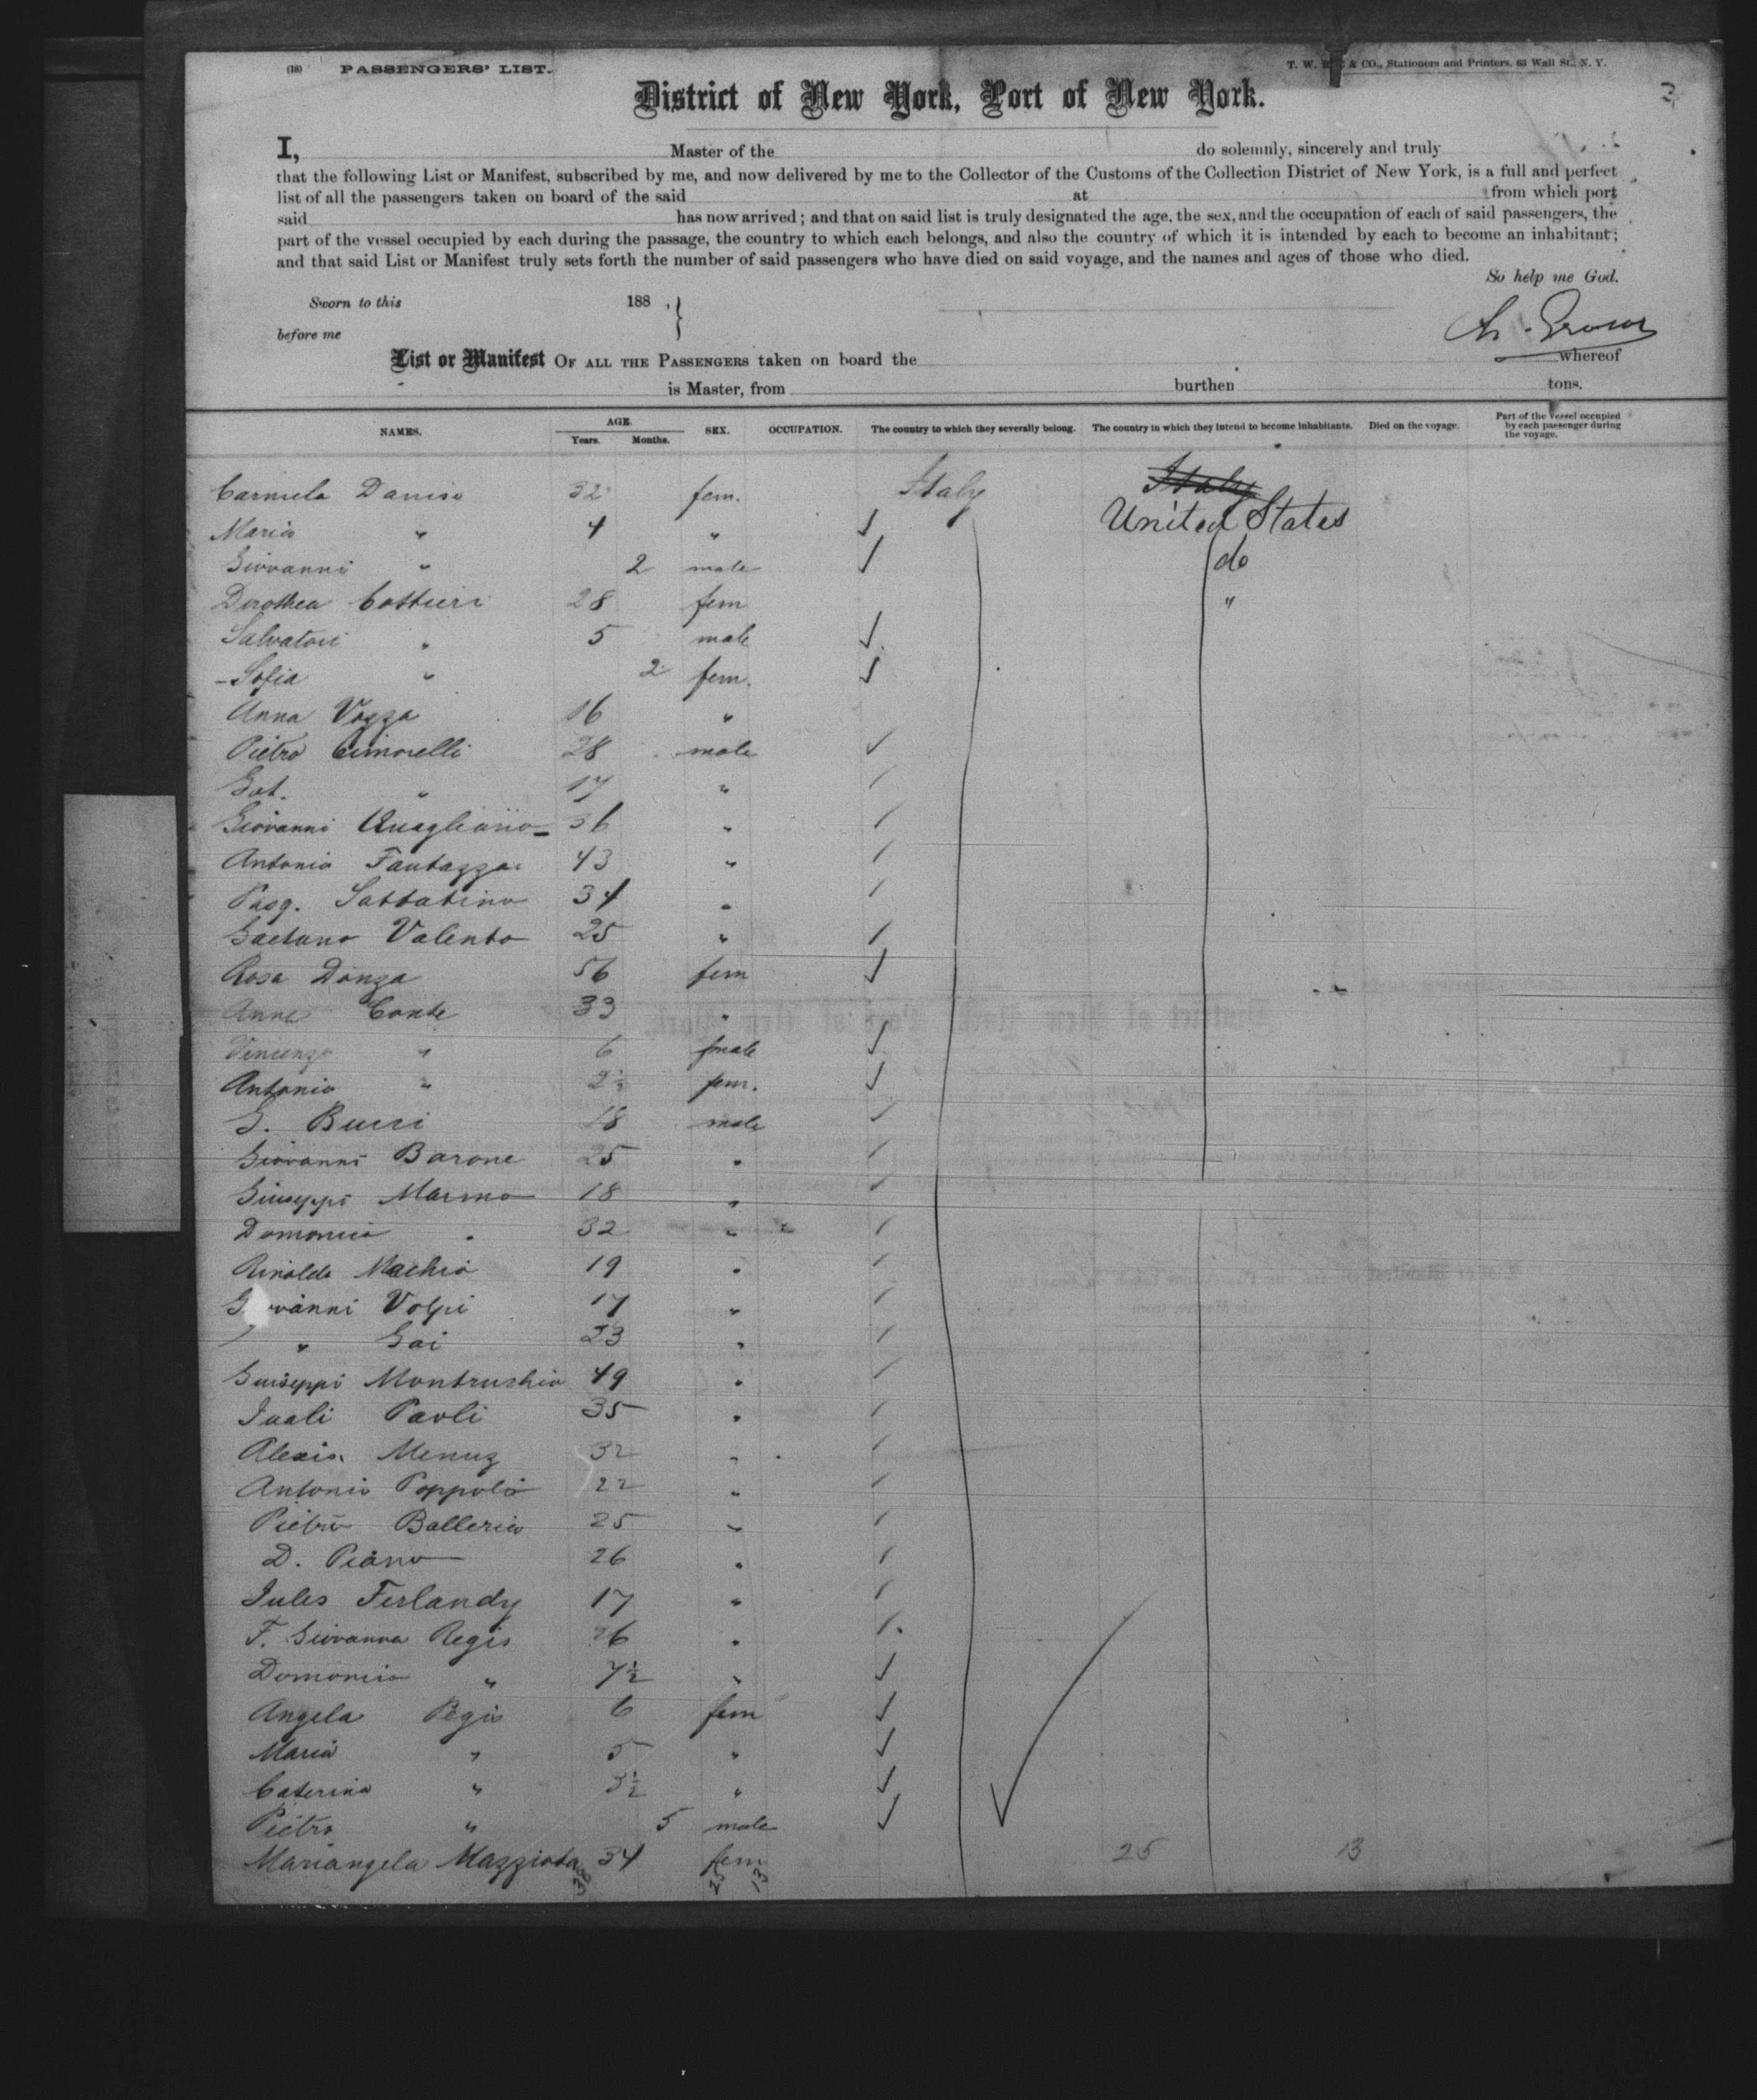 (18) PASSENGERS' LIST.
T. W. & CO., Stationers and Printers, 63 Wall St., N. Y.
3
District of New York, Port of New York.
I, Master of the do solemnly, sincerely and truly
that the following List or Manifest, subscribed by me, and now delivered by me to the Collector of the Customs of the Collection District of New York, is a full and perfect
list of all the passengers taken on board of the said at from which port
said has now arrived; and that on said list is truly designated the age, the sex, and the occupation of each of said passengers, the
part of the vessel occupied by each during the passage, the country to which each belongs, and also the country of which it is intended by each to become an inhabitant;
and that said List or Manifest truly sets forth the number of said passengers who have died on said voyage, and the names and ages of those who died.
So help me God.
Sworn to this 188 , }
before me
List or Manifest OF ALL THE PASSENGERS taken on board the whereof
is Master, from burthen tons.
NAMES. AGE. Years. Months. SEX. OCCUPATION. The country to which they severally belong. The country in which they intend to become inhabitants. Died on the voyage. Part of the vessel occupied by each passenger during the voyage.
Carmela Daniso 32 fem. Italy Italy
United States
Maria " 4 " ✓
Giovanni " 2 male ✓ do
Dorothea Cottieri 28 fem "
Salvatori " 5 male ✓
Sofia " 2 fem. ✓
Anna Vozza 16 "
Pietro Cimorelli 28 male ✓
Gat. " 17 "
Giovanni Quagliano 36 "
Antonio Fantazza 43 "
Pasq. Sabbatino 34 "
Gaetano Valento 25 "
Rosa Donza 56 fem ✓
Anna Conte 33 "
Vincenzo " 6 male ✓
Antonia " 2½ fem. ✓
G. Bucci 18 male
Giovanni Barone 25 "
Giuseppi Marmo 18 "
Domonico " 32 "
Rinaldo Machio 19 "
Giovanni Volpi 17 "
" Gai 23 "
Guiseppi Montrushio 49 "
Juali Paoli 35 "
Alexis Menuz 32 "
Antonio Poppolo 22 "
Pietro Ballerio 25 "
D. Piano 26 "
Jules Ferlandy 17 "
F. Giovanna Regis 26 "
Domonico " 7½ " ✓
Angela Regis 6 fem ✓
Maria " 5 " ✓
Caterina " 3½ " ✓
Pietro " 5 male ✓
Mariangela Mazziota 34 fem 25 13
38 25 13